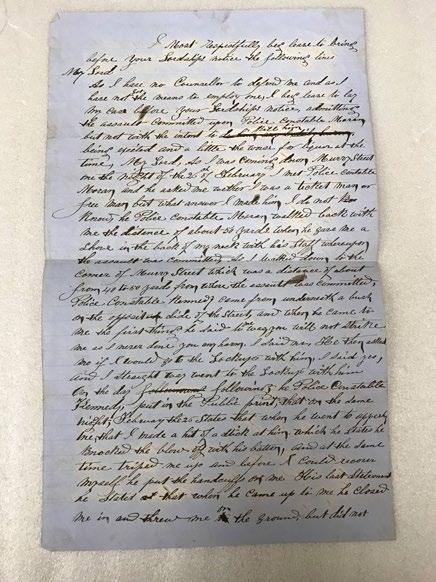 I Most respectfully beg leave to bring
before your Lordships notice the following lines
My Lord
As I have no Counsellor to defend me and as I
have not the means to employ one, I beg leave to lay
my case before your Lordships notice, admitting
the assault Committed upon Police Constable Moran
but not with the intent to
being excited and a little the worse for liquor at the
time, My Lord, As I was coming down Murry Street
one the night of the 26th of February I met Police Constable
Moran and he asked me wether I was a ticket man or
free man but what answer I made him I do not
Know, he Police Constable Moran walked back with
me the distance of about 50 yards when he gave me a
shove in the back of my neck with his staff whereupon
the assault was committed. As I walked down to the
corner of Murry Street which was a distance of about
from 40 to 50 yards from where the assault was committed,
Police Constable Kennedy came from underneath a bush
on the opposite side of the Street, and when he came to
me the first thing he said was you will not strike
me as I never done you any harm, I said no, He then asked
me if I would go to the Lockup with him, I said yes,
and I straight way went to the Lockup with him
On the day following he Police Constable
Kennedy put in the Public print, that on the same
night, February the 26 States that when he went to
me, that I made a hit of a stick at him, which he states he
knocked the blow off with his batton, and at the same
time triped me up and before I could recover
myself he put the handcuffs on me. His last Statement
he States that when he came up to me he closed
me in and threw me on the ground, but did not